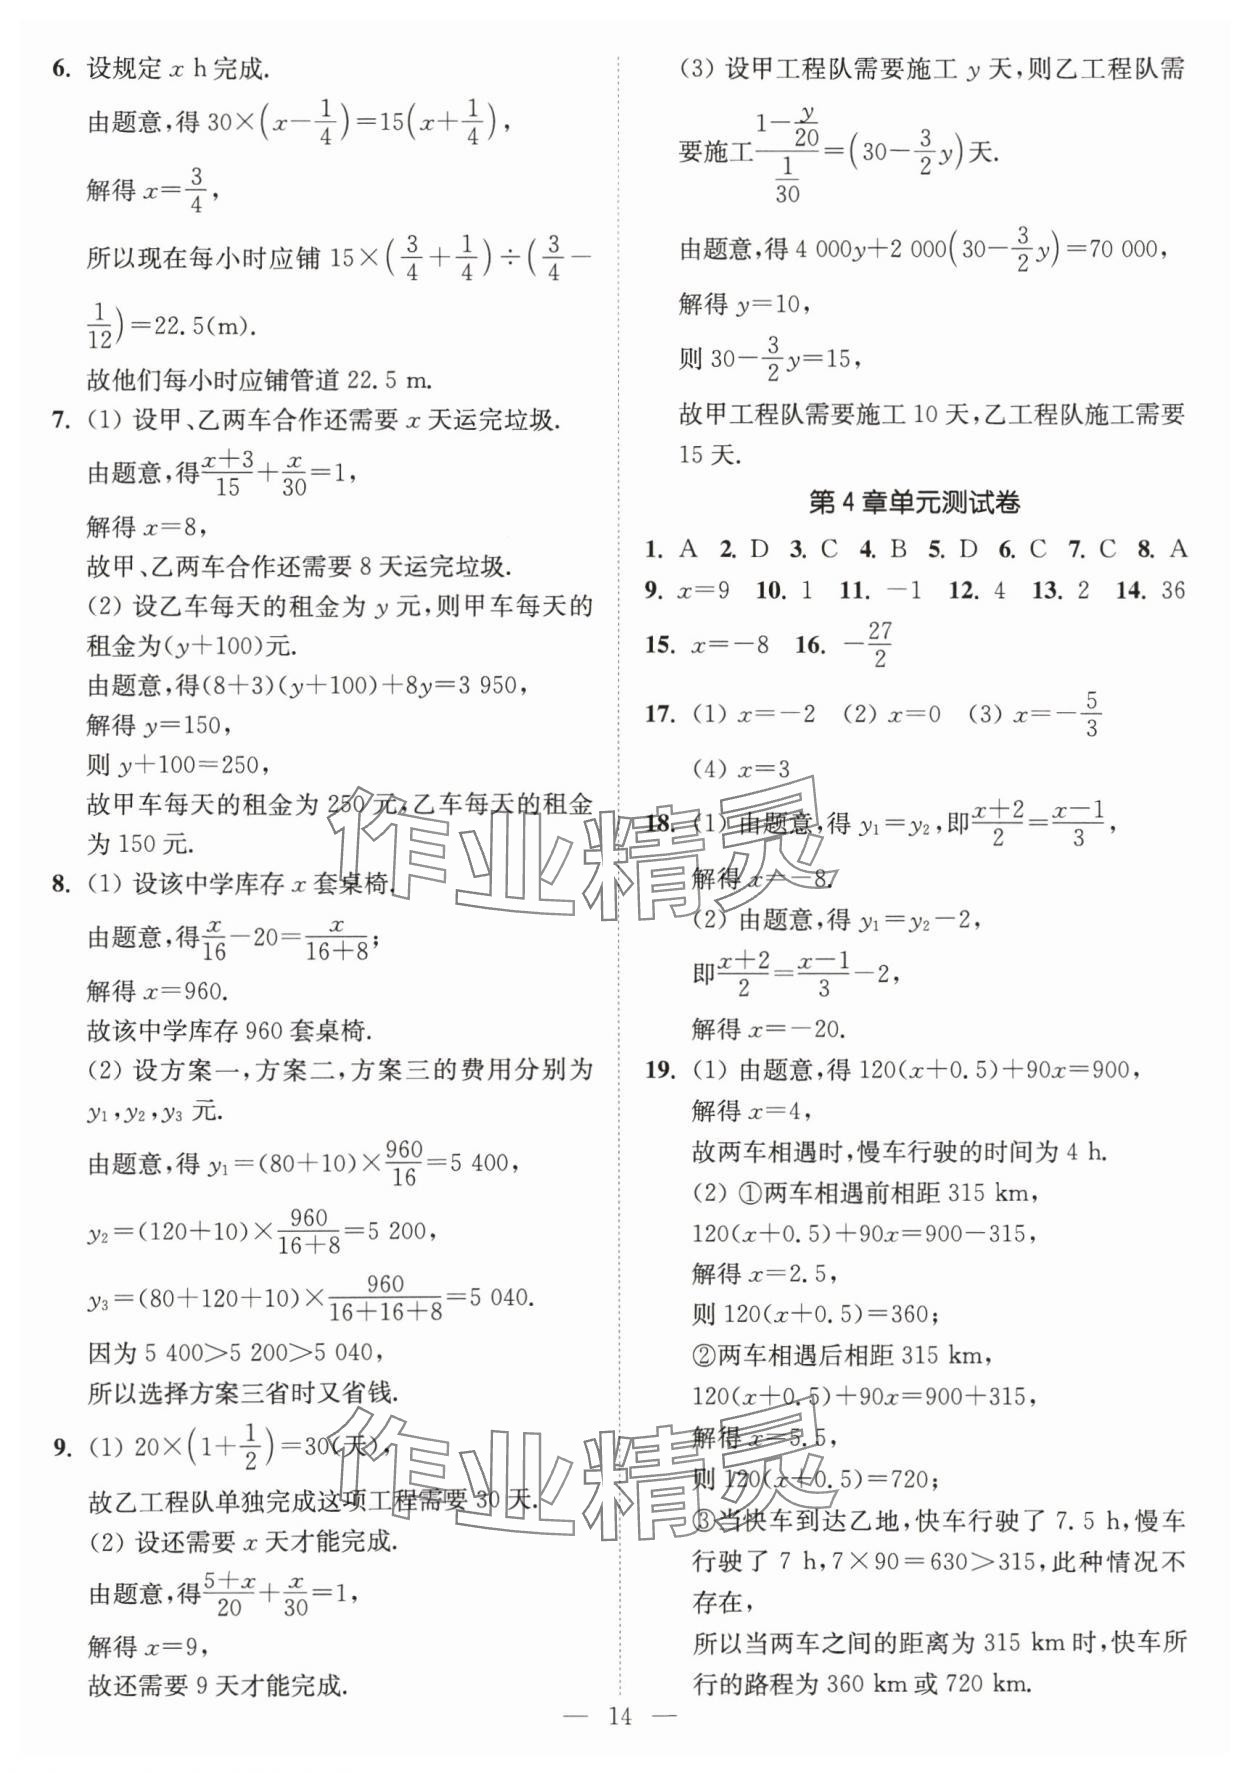 6. 设规定 x h完成.
由题意,得 30×(x－1/4)＝15(x＋1/4),
解得 x＝3/4,
所以现在每小时应铺 15×(3/4＋1/4)÷(3/4－
1/12)＝22.5(m).
故他们每小时应铺管道 22.5 m.
7. (1) 设甲、乙两车合作还需要 x 天运完垃圾.
由题意,得(x＋3)/15＋x/30＝1,
解得 x＝8,
故甲、乙两车合作还需要 8 天运完垃圾.
(2) 设乙车每天的租金为 y 元,则甲车每天的
租金为(y＋100)元.
由题意,得(8＋3)(y＋100)＋8y＝3 950,
解得 y＝150,
则 y＋100＝250,
故甲车每天的租金为 250 元,乙车每天的租金
为 150 元.
8. (1) 设该中学库存 x 套桌椅.
由题意,得x/16－20＝x/(16＋8);
解得 x＝960.
故该中学库存 960 套桌椅.
(2) 设方案一,方案二,方案三的费用分别为
y₁,y₂,y₃ 元.
由题意,得 y₁＝(80＋10)×960/16＝5 400,
y₂＝(120＋10)×960/(16＋8)＝5 200,
y₃＝(80＋120＋10)×960/(16＋16＋8)＝5 040.
因为 5 400＞5 200＞5 040,
所以选择方案三省时又省钱.
9. (1) 20×(1＋1/2)＝30(天),
故乙工程队单独完成这项工程需要 30 天.
(2) 设还需要 x 天才能完成.
由题意,得(5＋x)/20＋x/30＝1,
解得 x＝9,
故还需要 9 天才能完成.
(3) 设甲工程队需要施工 y 天,则乙工程队需
要施工(1－y/20)/(1/30)＝(30－3/2y)天.
由题意,得 4 000y＋2 000(30－3/2y)＝70 000,
解得 y＝10,
则 30－3/2y＝15,
故甲工程队需要施工 10 天,乙工程队施工需要
15 天.
第 4 章单元测试卷
1. A 2. D 3. C 4. B 5. D 6. C 7. C 8. A
9. x＝9 10. 1 11. －1 12. 4 13. 2 14. 36
15. x＝－8 16. －27/2
17. (1) x＝－2 (2) x＝0 (3) x＝－5/3
(4) x＝3
18. (1) 由题意,得 y₁＝y₂,即(x＋2)/2＝(x－1)/3,
解得 x＝－8.
(2) 由题意,得 y₁＝y₂－2,
即(x＋2)/2＝(x－1)/3－2,
解得 x＝－20.
19. (1) 由题意,得 120(x＋0.5)＋90x＝900,
解得 x＝4,
故两车相遇时,慢车行驶的时间为 4 h.
(2) ①两车相遇前相距 315 km,
120(x＋0.5)＋90x＝900－315,
解得 x＝2.5,
则 120(x＋0.5)＝360;
②两车相遇后相距 315 km,
120(x＋0.5)＋90x＝900＋315,
解得 x＝5.5,
则 120(x＋0.5)＝720;
③当快车到达乙地,快车行驶了 7.5 h,慢车
行驶了 7 h,7×90＝630＞315,此种情况不
存在,
所以当两车之间的距离为 315 km时,快车所
行的路程为 360 km或 720 km.
— 14 —
作业精灵
作业精灵